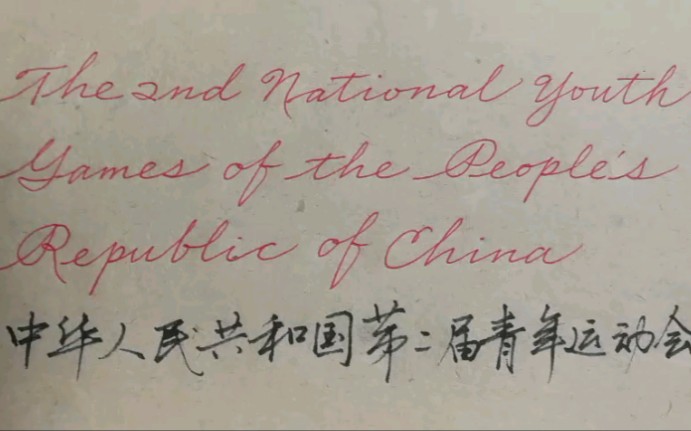 The 2nd National Youth
Games of the People's
Republic of China
中华人民共和国第二届青年运动会